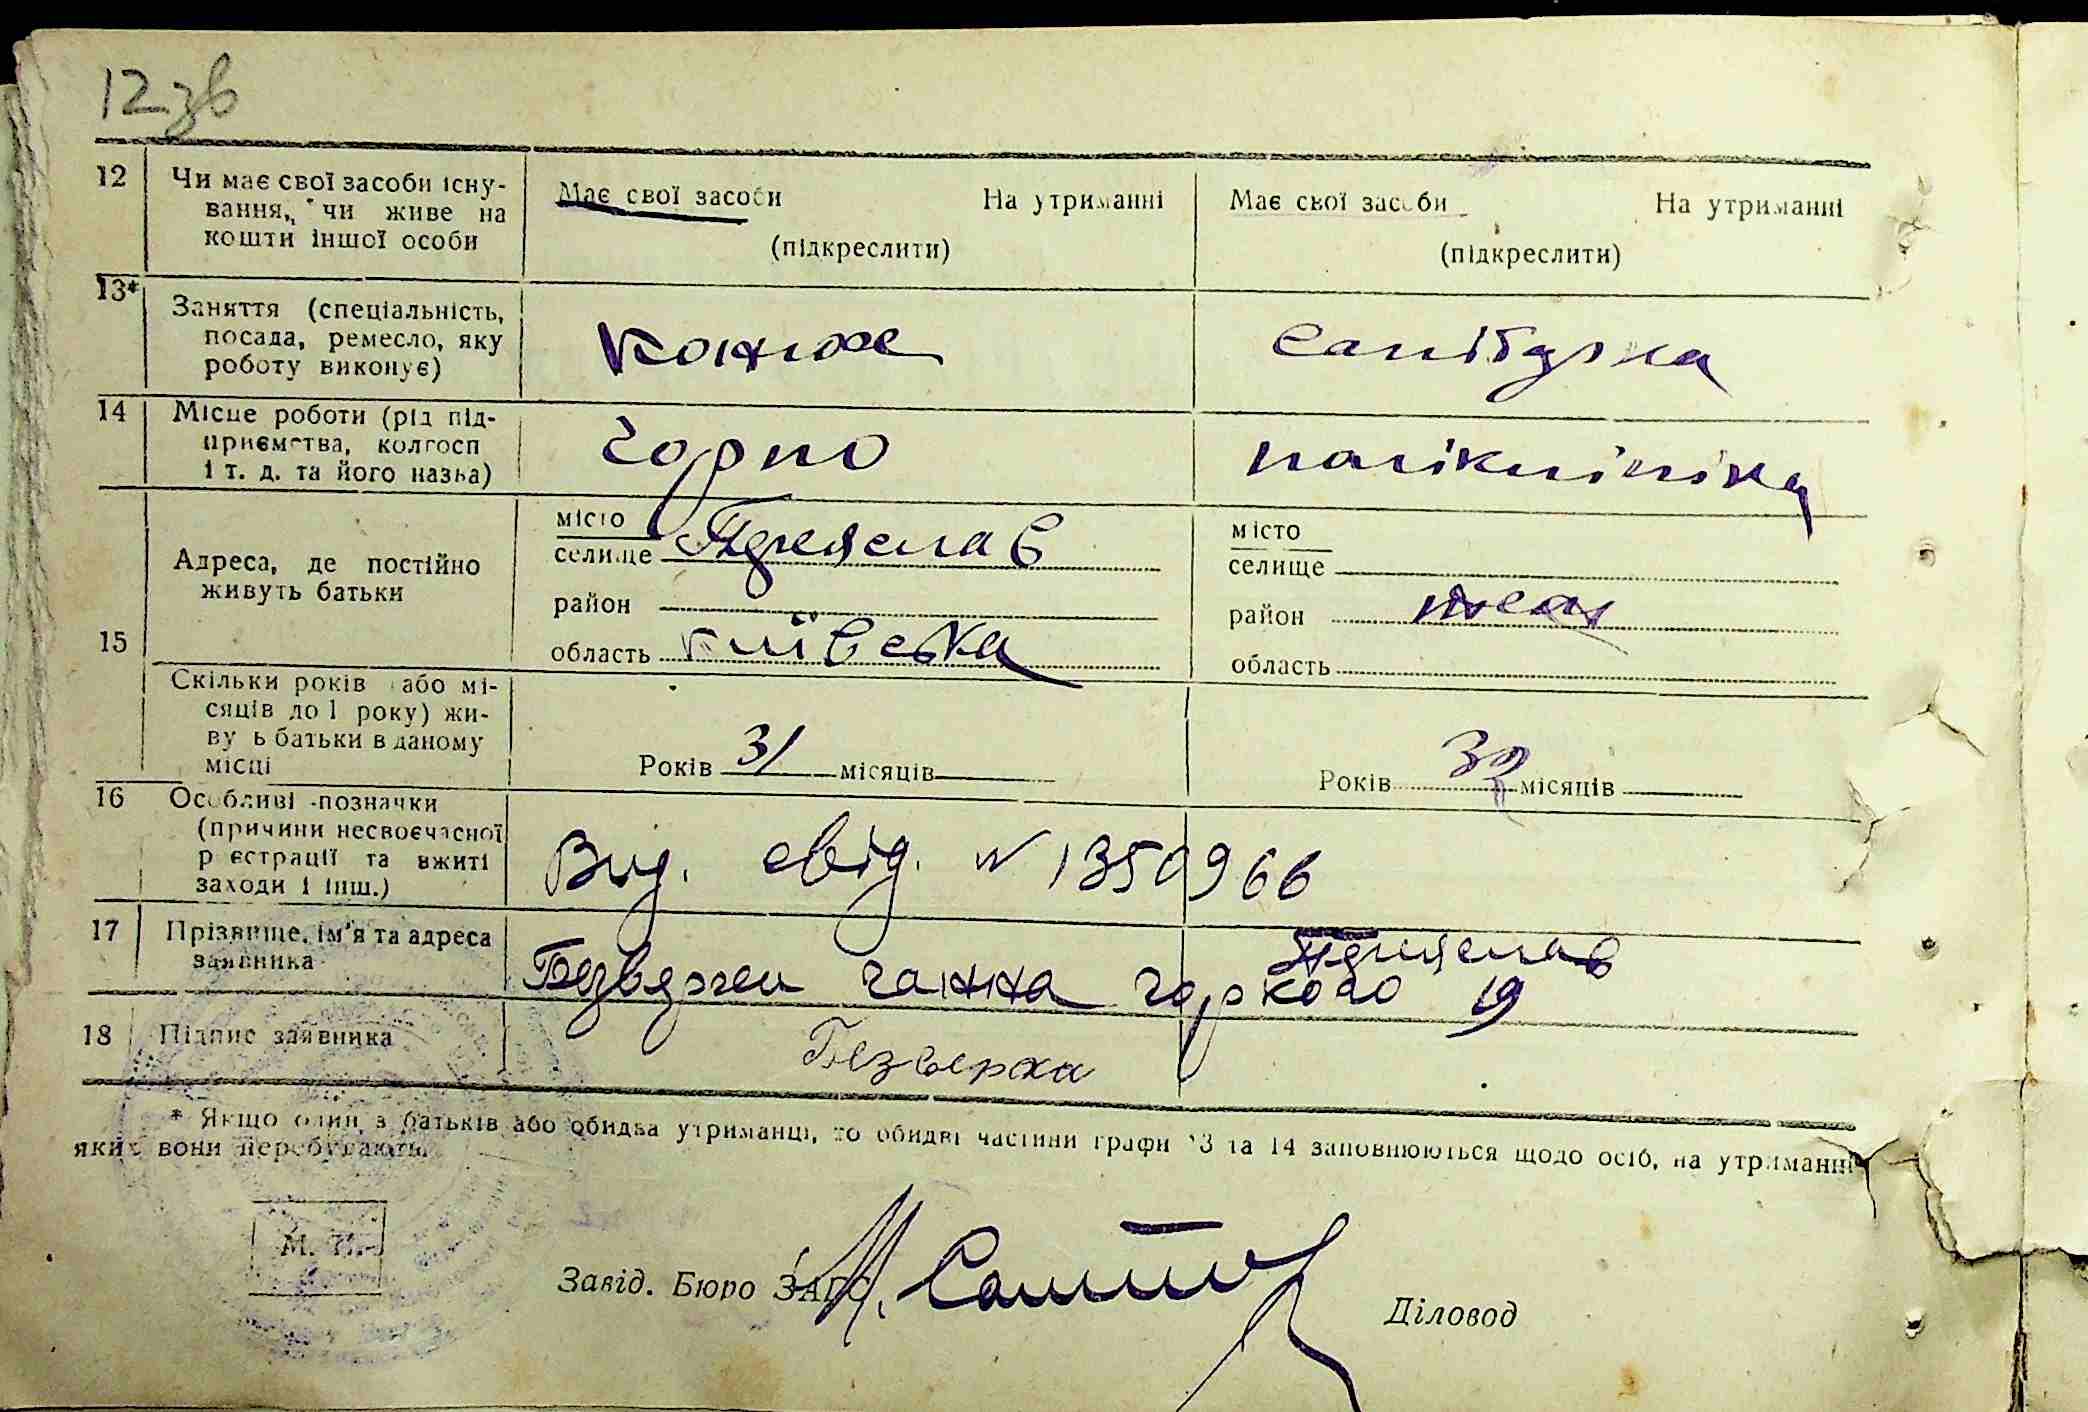 12 зв
12 Чи має свої засоби існу-
вання, чи живе на
кошти іншої особи
Має свої засоби На утриманні
(підкреслити)
Має свої засоби На утриманні
(підкреслити)
13* Заняття (спеціальність,
посада, ремесло, яку
роботу виконує)
конюх
санітарка
14 Місце роботи (рід під-
приємства, колгосп
і т. д. та його назва)
поліклініка
15 Адреса, де постійно
живуть батьки
місто
селище Переяслав
район
область київська
місто
селище
район
область
Скільки років або мі-
сяців до 1 року) жи-
ву ь батьки в даному
місці
Років 31 місяців
Років 32 місяців
16 Особливі позначки
(причини несвоєчасної
р єстрації та вжиті
заходи і інш.)
Вид. свід. № 1350966
17 Прізвище, ім'я та адреса
заявника
Переяслав
ганна горького 19
18 Підпис заявника
Безверха
* Якщо один з батьків або обидва утриманці, то обидві частини графи 13 та 14 заповнюються щодо осіб, на утриманні
яких вони перебувають.
М. П.
Завід. Бюро ЗАГС
Діловод